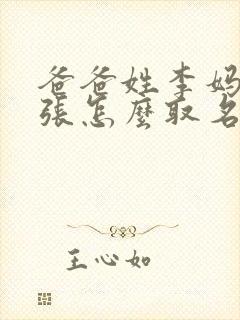 爸爸姓李妈
張怎麼取名
王心如